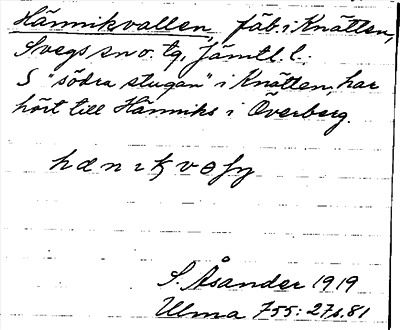 Hännikvallen, fäb. i Knätten,
Svegs sn o. tg, Jämtl. l.
S "södra stugan" i Knätten, har
hört till Hänniks i Överberg.
S. Åsander 1919
Ulma 755: 27 s. 81